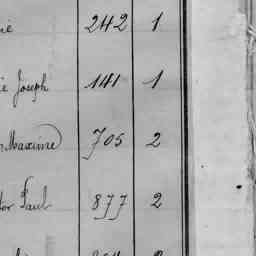 242 1
Joseph 141 1
Maxime 705 2
Paul 877 2